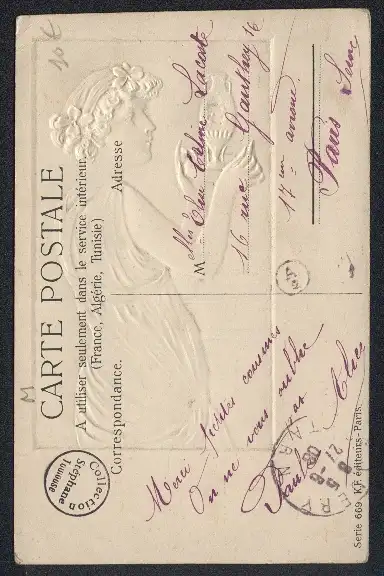 10€
M
CARTE POSTALE
A utiliser seulement dans le service intérieur
(France, Algérie, Tunisie)
Correspondance.
Adresse
M
Lacoste
16 rue Gauthey 16
17 em
Paris Seine
Merci petites cousines
On ne vous oublie
pas
Alice
Collection
Stéphane
Toulouse
TARN
21
8-5
08
Serie 669. K.F. éditeurs-Paris.